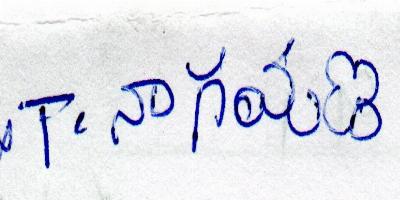 T. నాగమణి